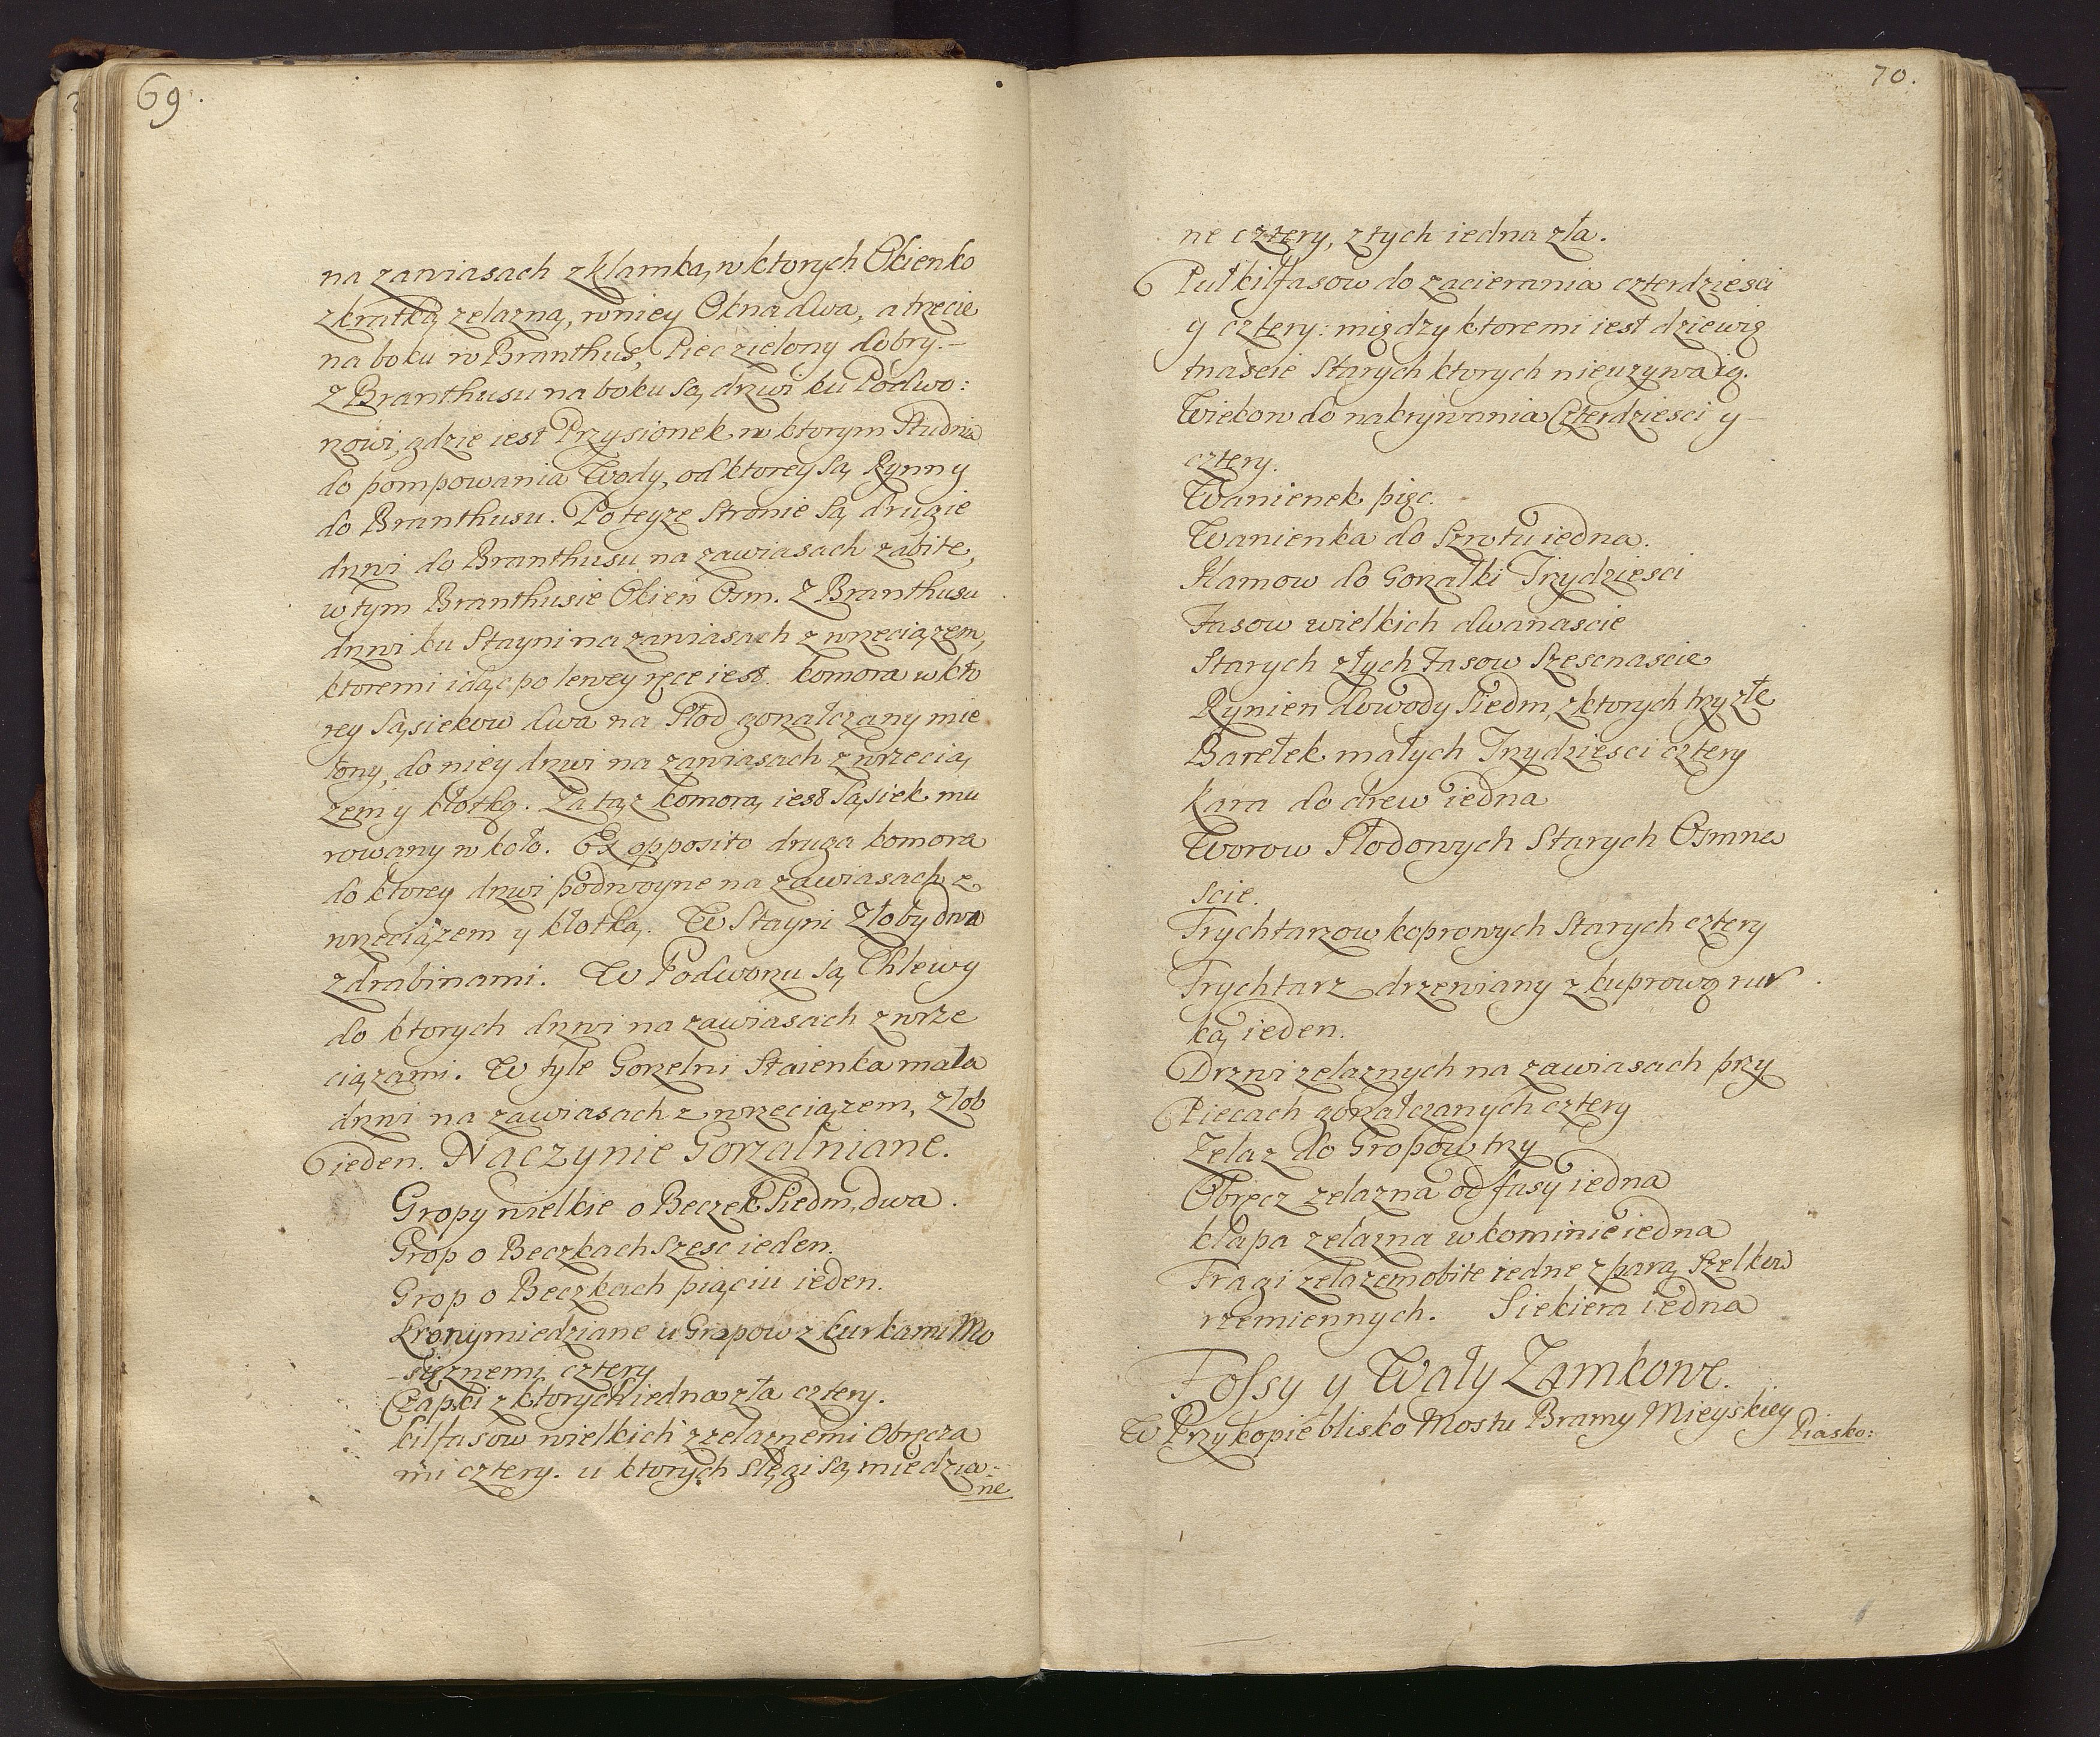 69.
na zawiasach z klamką, w ktorych Okienko
z kratką zelazną, w niey Okna dwa, a trzecie
na boku w Branthus, Piec zielony dobry.–
Z Branthusu na boku są drzwi ku Podwo:
rzowi, gdzie iest Przysionek w ktorym Studnia
do pompowania Wody, od ktorey są Rynny
do Branthusu. Po teyze Stronie są drugie
drzwi do Branthusu na zawiasach zabite,
w tym Branthusie Okien Osm. Z Branthusu
drzwi ku Stayni na zawiasach z wrzeciązem,
ktoremi idąc po lewey ręce iest komora w kto
rey sąsiekow dwa na Słod gorzałczany mie
lony, do niey drzwi na zawiasach z wrzecią
zem y kłotką. Za tąz komorą iest sąsiek mu
rowany w koło. Ex opposito druga komora
do ktorey drzwi podwoyne na zawiasach z
wrzeciązem y kłotką. W Stayni Złoby dwa
z drabinami. W Podworzu są Chlewy
do ktorych drzwi na zawiasach z wrze
ciązami. W tyle Gorzelni Staienka mała
drzwi na zawiasach z wrzeciązem, złob
ieden. Naczynie Gorzalniane.
Gropy wielkie o Beczek Siedm, dwa.
Grop o Beczkach Szesc ieden.
Grop o Beczkach piąciu ieden.
Krony miedziane u Gropow z kurkami Mo
sięznemi cztery
Czapki z ktorych iedna zła cztery.
Kilfasow wielkich z zelaznemi Obręcza
mi cztery. u ktorych slęgi są miedzia:
ne
70.
ne cztery, z tych iedna zła.
Puł kilfasow do zacierania czterdziesci
y cztery: między ktoremi iest dziewię
tnascie Starych ktorych nieuzywaią.
Wiekow do nakrywania Czterdziesci y –
cztery.
Wanienek pięc.
Wanienka do Szrotu iedna.
Hamow do Gorzałki Trzydziesci
Fasow wielkich dwanascie
Starych złych Fasow Szesnascie
Rynien do wody Siedm, z ktorych trzy złe
Barełek małych Trzydziesci cztery
Kara do drew iedna
Worow Słodowych Starych Osmna
scie.
Trychtarzow koprowych Starych cztery
Trychtarz drzewiany z kuprową rur
ką ieden.
Drzwi zelaznych na zawiasach przy
Piecach gorzałczanych cztery
Zelaz do Gropow trzy
Obręcz zelazna od fasy iedna
Kłapa zelazna w kominie iedna
Tragi zelazem obite iedne z parą Szelkow
rzemiennych. Siekiera iedna
Fossy y Wały Zamkowe.
W Przykopie blisko Mostu Bramy Mieyskiey
Piasko: